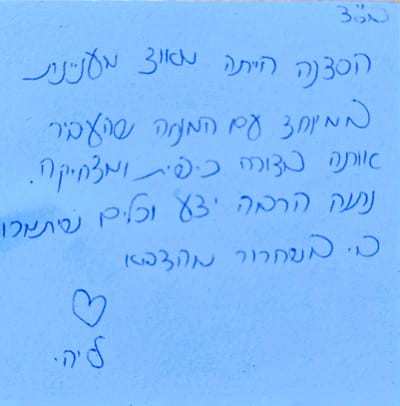 בס"ד
הסדנה הייתה מאוד מעניינת
במיוחד עם המנחה שהעביר
אותה בצורה כיפית ומצחיקה.
נתנה הרבה ידע וכלים שיתמכו
בי בשחרור מהצבא
ליה.